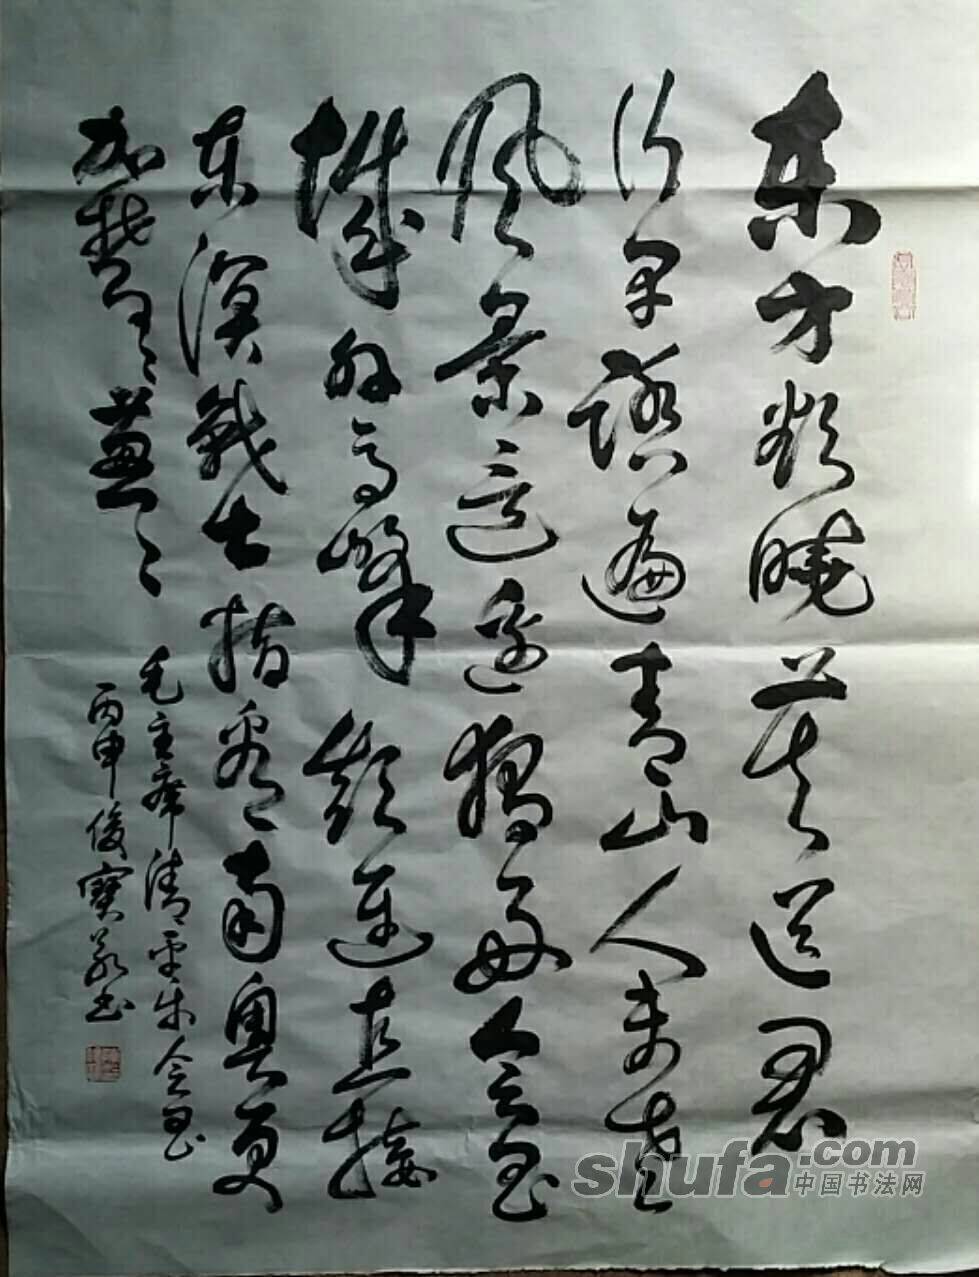 东方欲晓莫道君
行早踏遍青山人未老
风景这边独好会昌
城外高峰颠连直接
东溟战士指看南粤更
加郁々葱々
毛主席清平乐会昌
丙申俊寶书
shufa.com
中国书法网